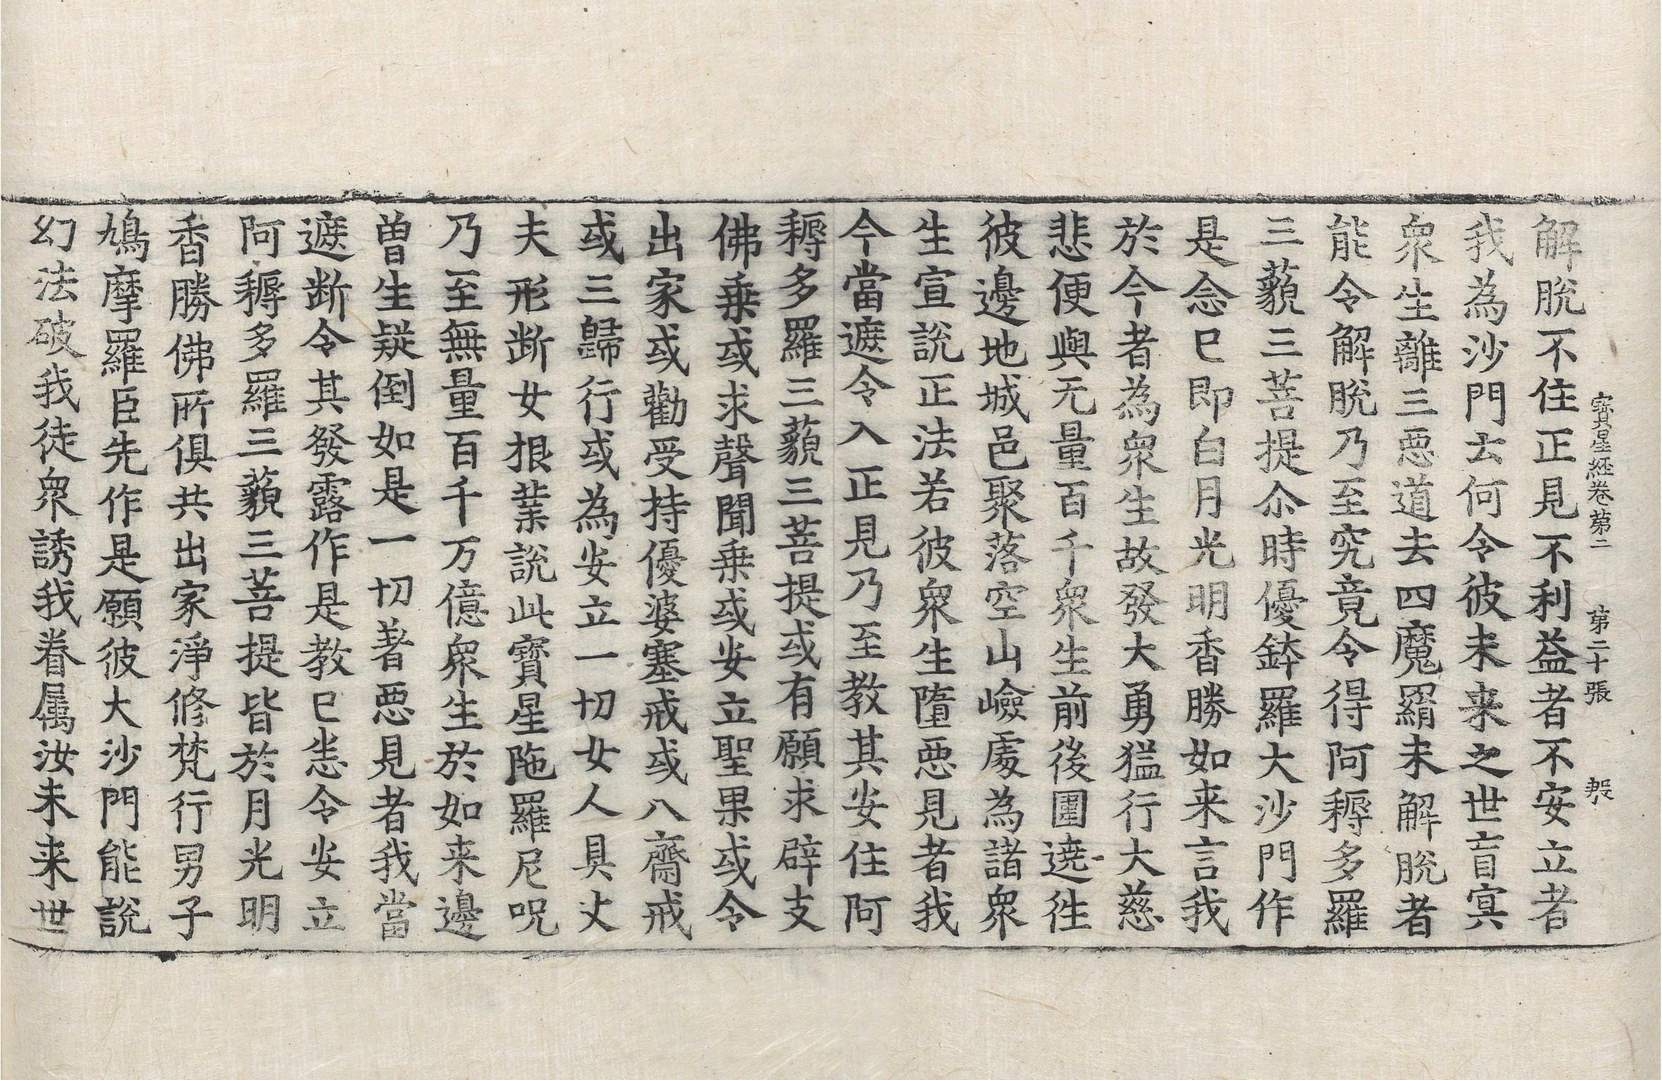 寶星經卷第二 第二十張 㪅
解脫不住正見不利益者不安立者
我為沙門云何令彼未来之世盲冥
衆生離三惡道去四魔羂未解脫者
能令解脫乃至究竟令得阿耨多羅
三藐三菩提尒時優鉢羅大沙門作
是念已即白月光明香勝如来言我
於今者為衆生故發大勇猛行大慈
悲便與无量百千衆生前後圍遶徃
彼邊地城邑聚落空山嶮處為諸衆
生宣說正法若彼衆生墮惡見者我
今當遮令入正見乃至教其安住阿
耨多羅三藐三菩提或有願求辟支
佛乗或求聲聞乗或安立聖果或令
出家或勸受持優婆塞戒或八齋戒
或三歸行或為安立一切女人具丈
夫形断女根業說此寶星陁羅尼呪
乃至無量百千万億衆生於如来邊
曽生疑倒如是一切著惡見者我當
遮断令其發露作是教已悉令安立
阿耨多羅三藐三菩提皆於月光明
香勝佛所俱共出家淨修梵行男子
鳩摩羅臣先作是願彼大沙門能說
幻法破我徒衆誘我眷属汝未来世